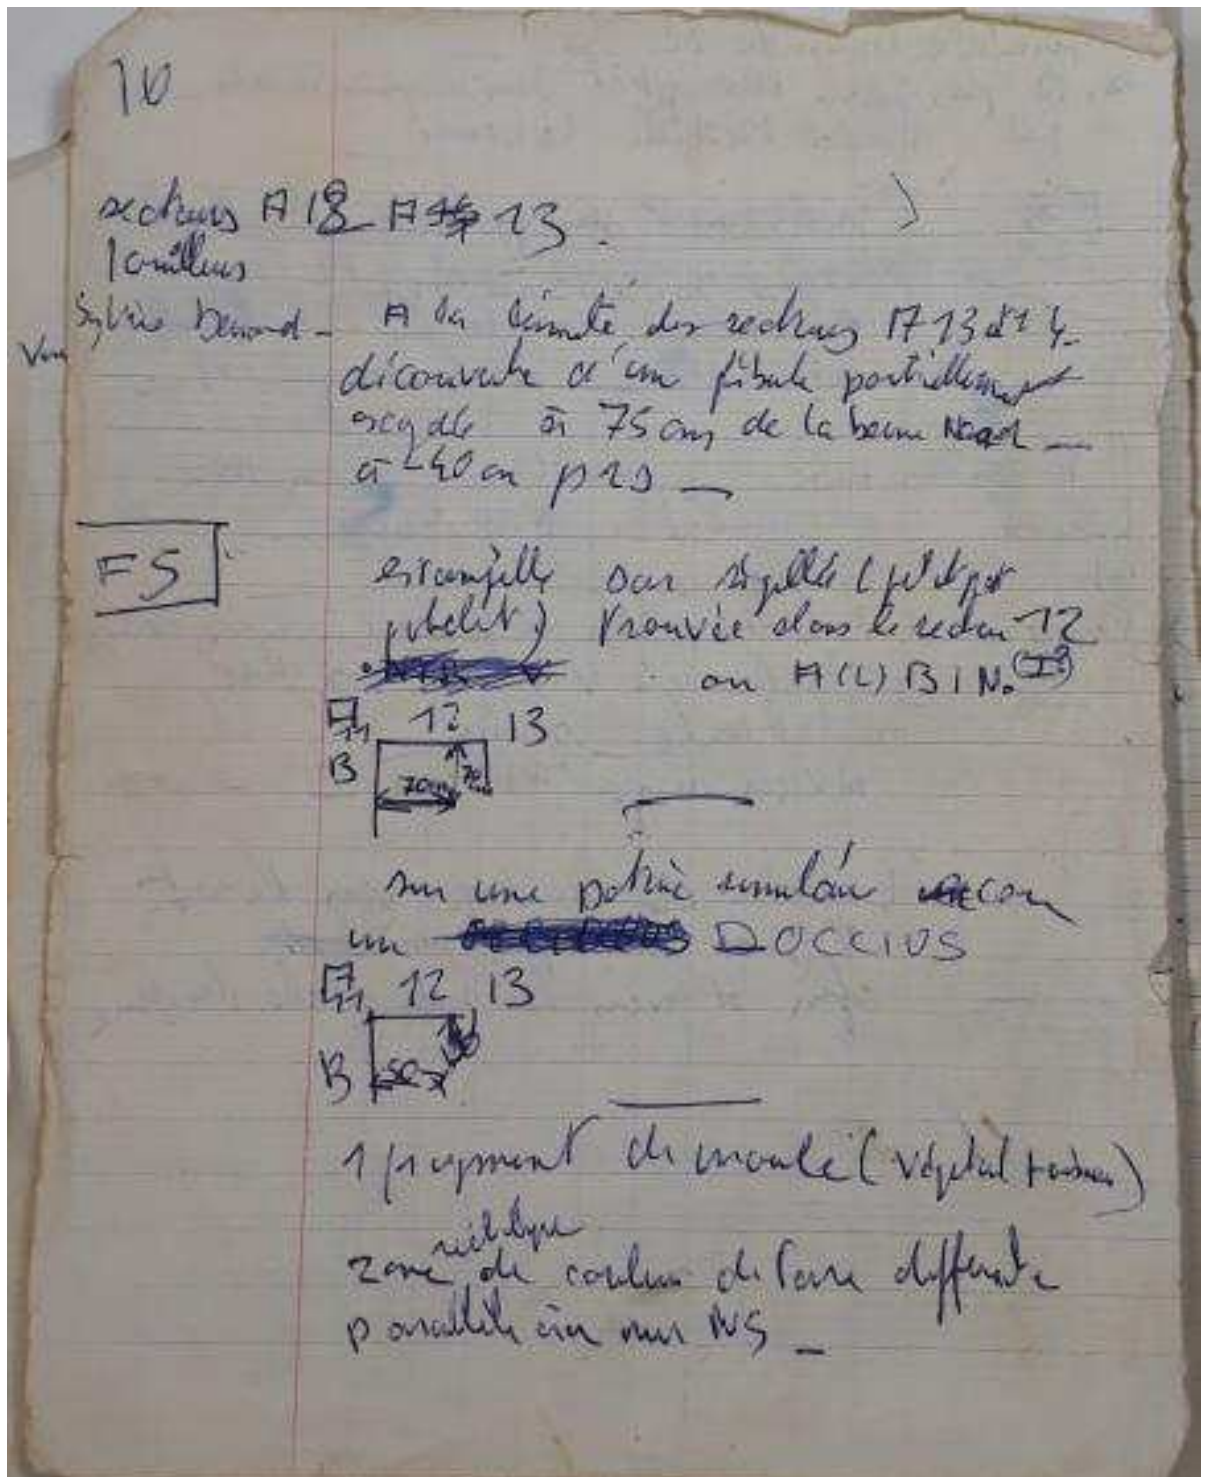 10
secteurs A 12 A 13.
fouilleurs
Sylvie A la limite des secteurs A 13 et 14
découverte d'une fibule partiellement
à 75 cm de la berme Nord
à -40 cm
F5
estampille sur sigillée (petit
trouvée dans le secteur 12
ou A(L) BIN. (I?)
A 11 12 13
B 70 cm 70
sur une poterie similaire
un DOCCIUS
A 11 12 13
B 50
1 fragment de moule (végétal
zone de couleur de terre différente
parallèle au mur NS